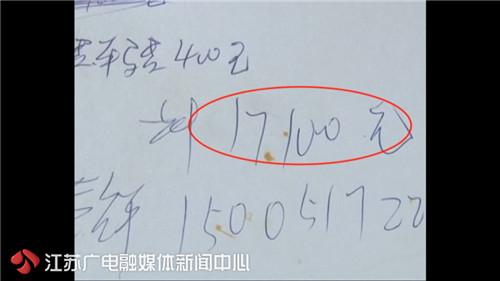 400元
计 17,100元
150051722
江苏广电融媒体新闻中心